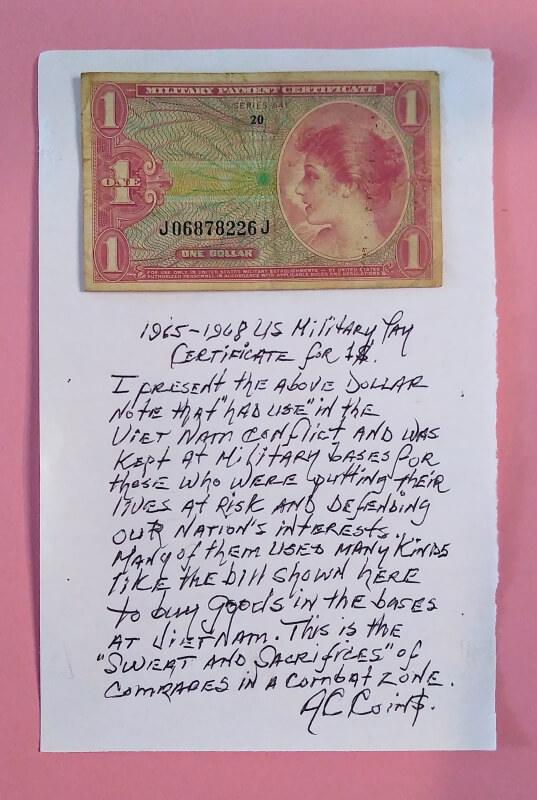 MILITARY PAYMENT CERTIFICATE
1 1
SERIES 641
20
1
ONE
J06878226J
1 1
ONE DOLLAR
FOR USE ONLY IN UNITED STATES MILITARY ESTABLISHMENTS — BY UNITED STATES
AUTHORIZED PERSONNEL IN ACCORDANCE WITH APPLICABLE RULES AND REGULATIONS
1965-1968 US Military Pay
Certificate for 1$.
I present the above Dollar
note that "had use" in the
Viet Nam Conflict and was
kept at Military bases for
those who were putting their
lives at risk and defending
our nation's interests.
Many of them used many kinds
like the bill shown here
to buy goods in the bases
at Vietnam. This is the
"Sweat and Sacrifices" of
comrades in a combat zone.
AC Coin$.